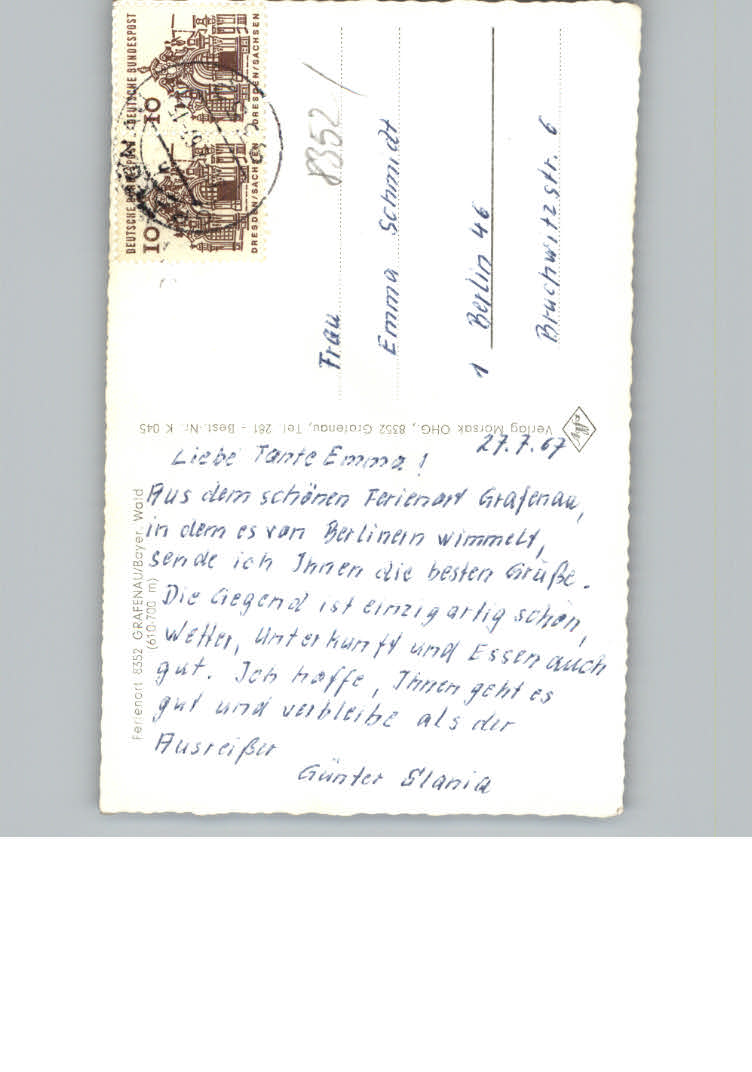 DEUTSCHE BUNDESPOST
10
DRESDEN/SACHSEN
DEUTSCHE BUNDESPOST
10
DRESDEN/SACHSEN
8352
Frau
Emma Schmidt
1 Berlin 46
Bruchwitzstr. 6
Verlag Morsak OHG., 8352 Grafenau, Tel. 261 - Best.-Nr. K 045
Agfa
Ferienort 8352 GRAFENAU/Bayer. Wald
(610-700 m)
27.7.67
Liebe Tante Emma!
Aus dem schönen Ferienort Grafenau,
in dem es von Berlinern wimmelt,
sende ich Ihnen die besten Grüße.
Die Gegend ist einzigartig schön,
Wetter, Unterkunft und Essen auch
gut. Ich hoffe, Ihnen geht es
gut und verbleibe als der
Ausreißer
Günter Slania